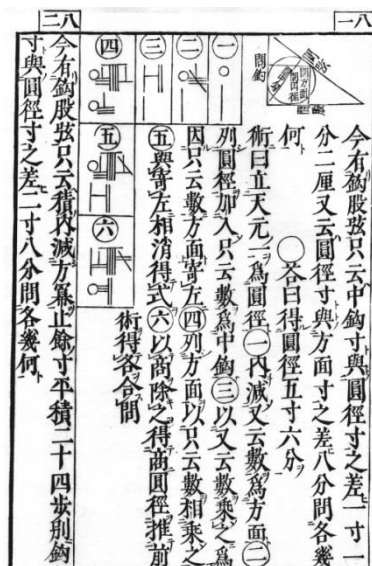 八一
今有鈎股弦只云中鈎寸與圓徑寸之差一寸一
分二厘又云圓徑寸與方面寸之差八分問各幾
何 ○ 答曰得圓徑五寸六分
術曰立天元一爲圓徑㊀内減又云數爲方面㊁
列圓徑加入只云數爲中鈎㊂以又云數乘之爲
因只云數方面寄左㊃列方面以只云數相乘之
㊄與寄左相消得式㊅以商除之得商圓徑推前
術得各合問
一
二
三
四
五
六
八二
今有鈎股弦只云積内減方冪止餘寸平積二十四步別鈎
寸與圓徑寸之差二寸八分問各幾何